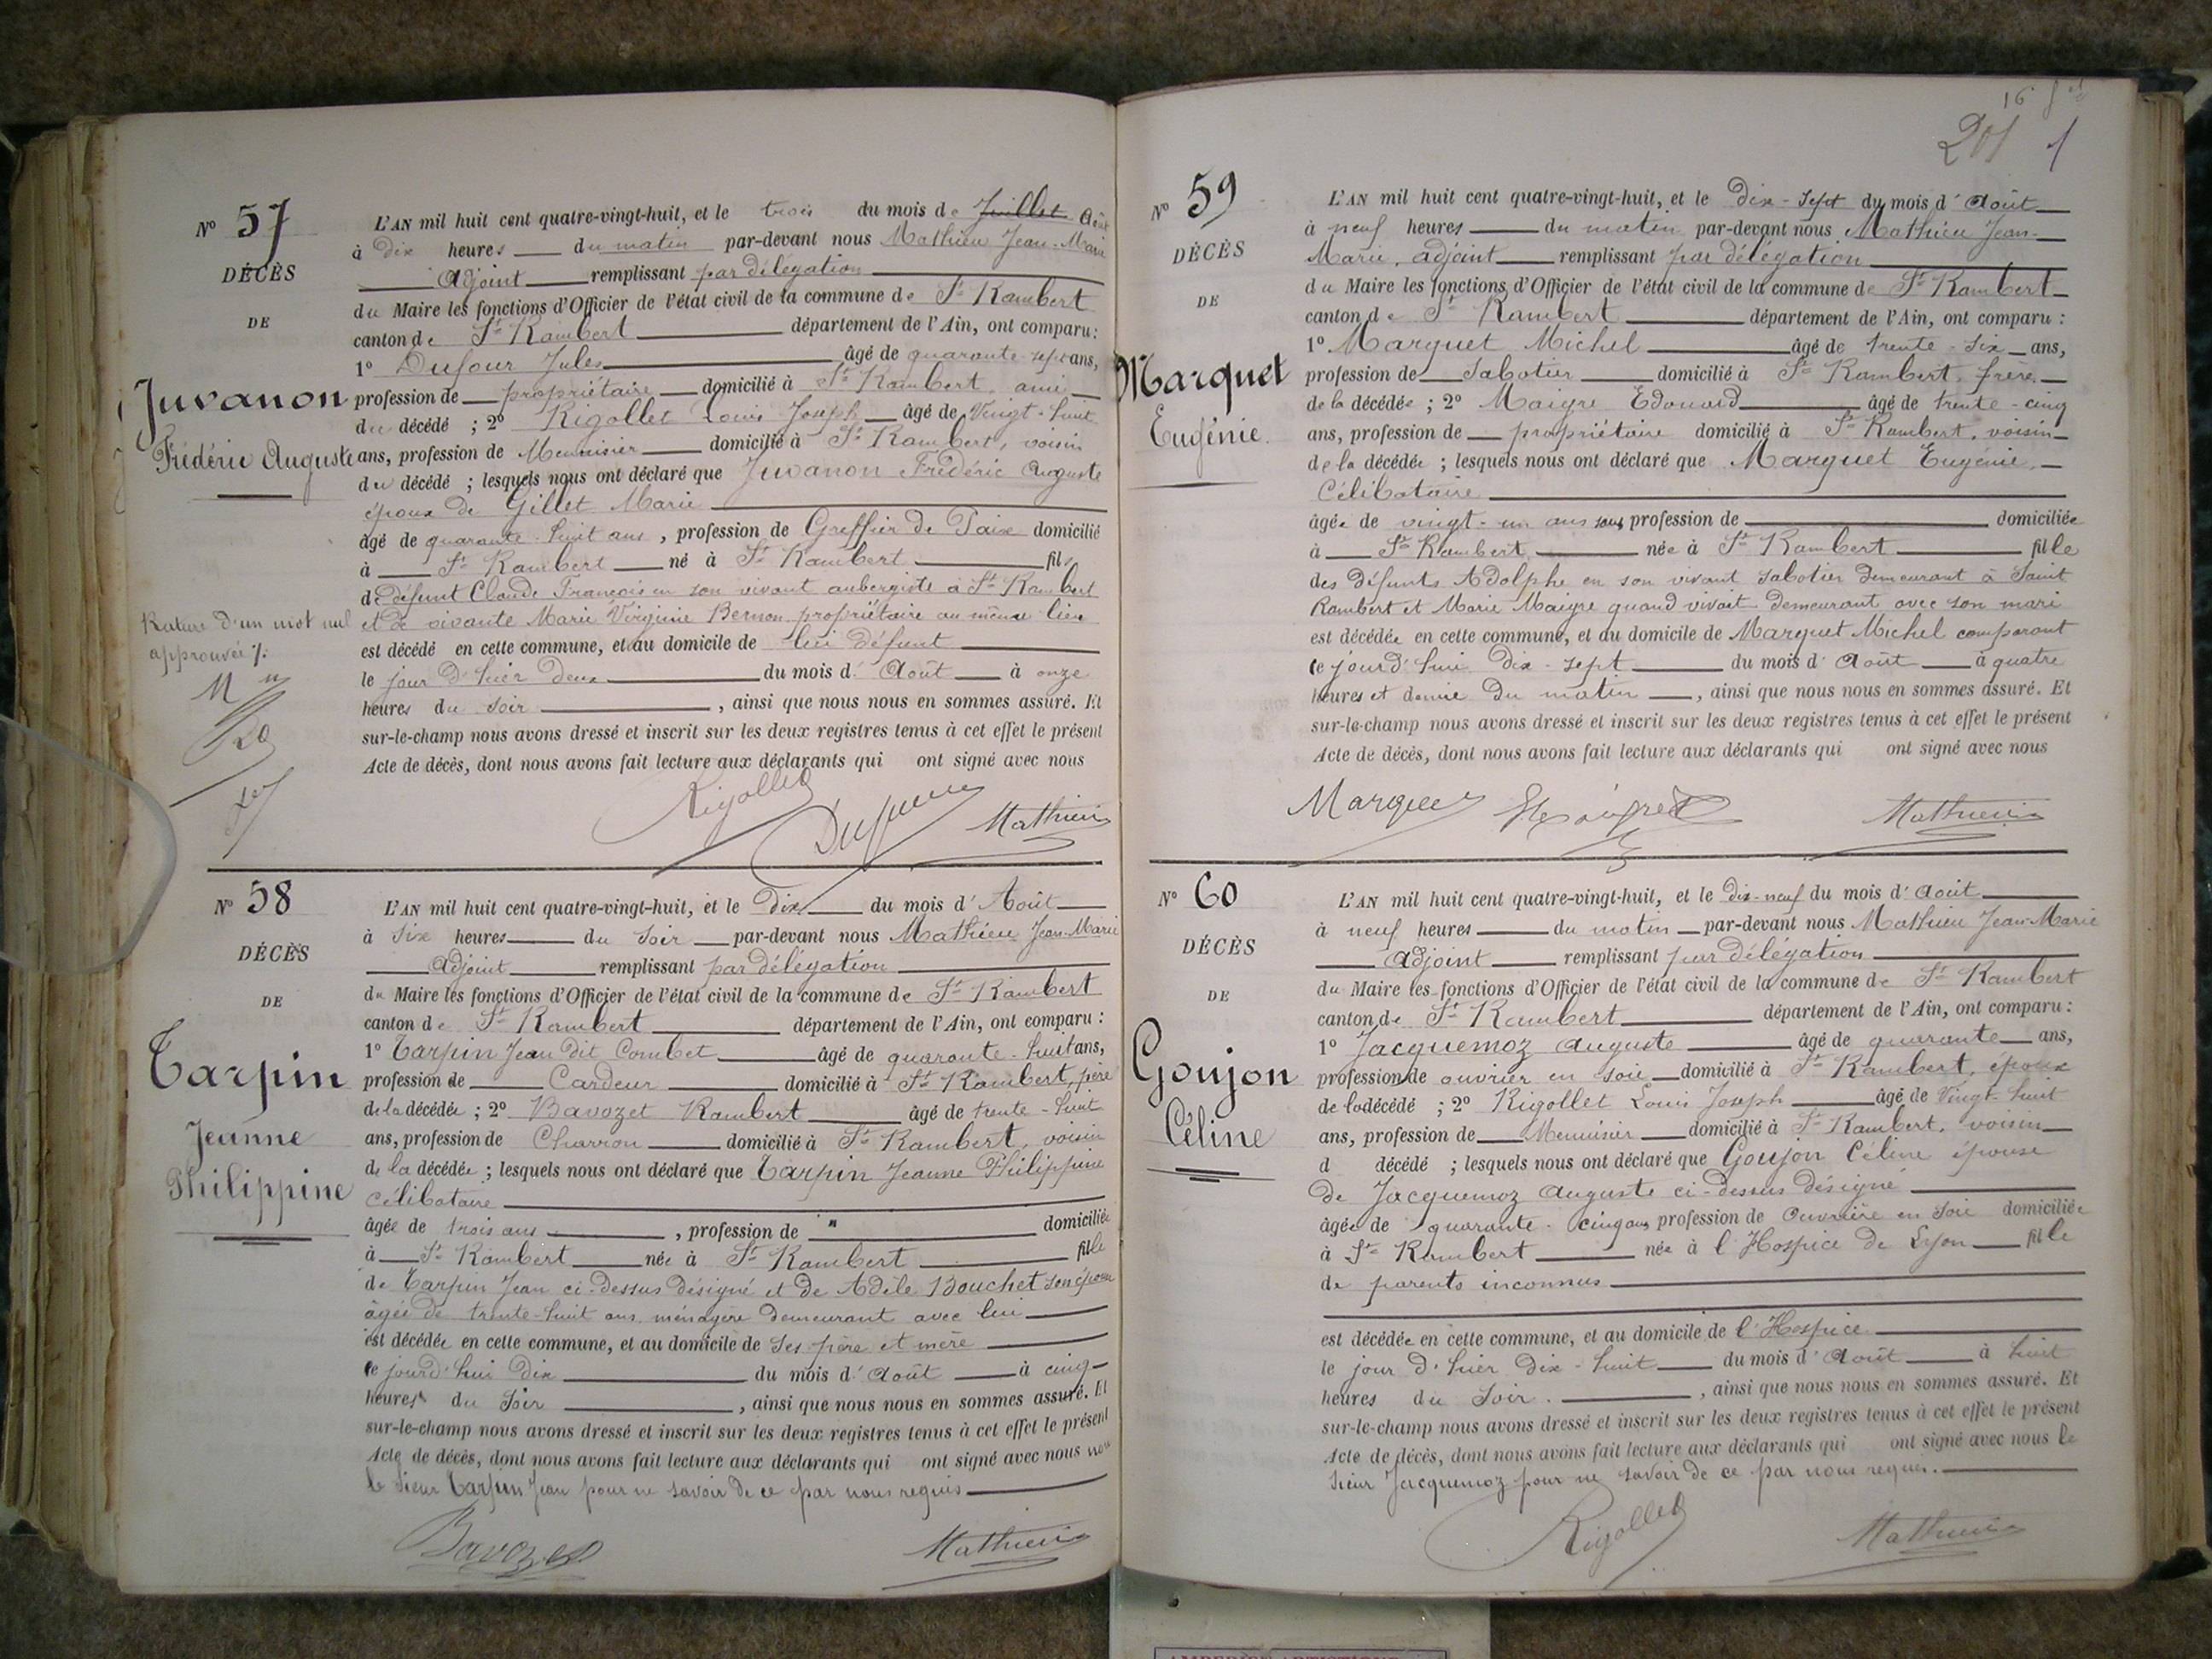 N° 57
DÉCÈS
DE
Juvanon
Frédéric Auguste
Rature d'un mot nul
approuvée /.
L'AN mil huit cent quatre-vingt-huit, et le trois du mois de Juillet Août
à Dix heures du matin par-devant nous Mathieu Jean-Marie
Adjoint remplissant par délégation
du Maire les fonctions d'Officier de l'état civil de la commune de St Rambert
canton de St Rambert département de l'Ain, ont comparu :
1° Dufour Jules âgé de quarante-sept ans,
profession de propriétaire domicilié à St Rambert ami
du décédé ; 2° Rigollet Louis Joseph âgé de Vingt-huit
ans, profession de Menuisier domicilié à St Rambert, voisin
du décédé ; lesquels nous ont déclaré que Juvanon Frédéric Auguste
époux de Gillet Marie
âgé de quarante-huit ans, profession de Greffier de Paix domicilié
à St Rambert né à St Rambert fils
de défunt Claude François en son vivant aubergiste à St Rambert
et de vivante Marie Virginie Bernon propriétaire au même lieu
est décédé en cette commune, et au domicile de lui défunt
le jour d'hier deux du mois d'Août à onze
heures du soir, ainsi que nous nous en sommes assuré. Et
sur-le-champ nous avons dressé et inscrit sur les deux registres tenus à cet effet le présent
Acte de décès, dont nous avons fait lecture aux déclarants qui ont signé avec nous
Rigollet Dufour Mathieu
N° 58
DÉCÈS
DE
Tarpin
Jeanne
Philippine
L'AN mil huit cent quatre-vingt-huit, et le Dix du mois d'Août
à Six heures du soir par-devant nous Mathieu Jean-Marie
Adjoint remplissant par délégation
du Maire les fonctions d'Officier de l'état civil de la commune de St Rambert
canton de St Rambert département de l'Ain, ont comparu :
1° Tarpin Jean dit Combet âgé de quarante-huit ans,
profession de Cardeur domicilié à St Rambert, père
de la décédée ; 2° Bavozet Rambert âgé de trente-huit
ans, profession de Charron domicilié à St Rambert, voisin
de la décédée ; lesquels nous ont déclaré que Tarpin Jeanne Philippine
célibataire
âgée de trois ans, profession de " domiciliée
à St Rambert née à St Rambert fille
de Tarpin Jean ci-dessus désigné et de Adèle Bouchet son épouse
âgée de trente-huit ans ménagère demeurant avec lui
est décédée en cette commune, et au domicile de ses père et mère
ce jourd'hui dix du mois d'Août à cinq
heures du Soir, ainsi que nous nous en sommes assuré. Et
sur-le-champ nous avons dressé et inscrit sur les deux registres tenus à cet effet le présent
Acte de décès, dont nous avons fait lecture aux déclarants qui ont signé avec nous non
le sieur Tarpin Jean pour ne savoir de ce par nous requis
Bavozet Mathieu
16
201
N° 59
DÉCÈS
DE
Marquet
Eugénie
L'AN mil huit cent quatre-vingt-huit, et le Dix-Sept du mois d'Août
à neuf heures du matin par-devant nous Mathieu Jean-
Marie, adjoint remplissant par délégation
du Maire les fonctions d'Officier de l'état civil de la commune de St Rambert
canton de St Rambert département de l'Ain, ont comparu :
1° Marquet Michel âgé de trente-six ans,
profession de Sabotier domicilié à St Rambert, frère
de la décédée ; 2° Maigre Edouard âgé de trente-cinq
ans, profession de propriétaire domicilié à St Rambert, voisin
de la décédée ; lesquels nous ont déclaré que Marquet Eugénie,
Célibataire
âgée de vingt-un ans sans profession de domiciliée
à St Rambert née à St Rambert fille
des défunts Adolphe en son vivant sabotier demeurant à Saint
Rambert et Marie Maigre quand vivait demeurant avec son mari
est décédée en cette commune, et au domicile de Marquet Michel comparant
ce jourd'hui Dix-sept du mois d'Août à quatre
heures et demie du matin, ainsi que nous nous en sommes assuré. Et
sur-le-champ nous avons dressé et inscrit sur les deux registres tenus à cet effet le présent
Acte de décès, dont nous avons fait lecture aux déclarants qui ont signé avec nous
Marquet Mathieu
N° 60
DÉCÈS
DE
Goujon
Céline
L'AN mil huit cent quatre-vingt-huit, et le Dix-neuf du mois d'Août
à neuf heures du matin par-devant nous Mathieu Jean-Marie
Adjoint remplissant par délégation
du Maire les fonctions d'Officier de l'état civil de la commune de St Rambert
canton de St Rambert département de l'Ain, ont comparu :
1° Jacquemoz Auguste âgé de quarante ans,
profession de ouvrier en soie domicilié à St Rambert, époux
de la décédé ; 2° Rigollet Louis Joseph âgé de Vingt-huit
ans, profession de Menuisier domicilié à St Rambert, voisin
d décédé ; lesquels nous ont déclaré que Goujon Céline épouse
de Jacquemoz Auguste ci-dessus désigné
âgée de quarante-cinq ans profession de Ouvrière en Soie domiciliée
à St Rambert née à l'Hospice de Lyon fille
de parents inconnus
est décédée en cette commune, et au domicile de l'Hospice
le jour d'hier Dix-huit du mois d'Août à huit
heures du Soir, ainsi que nous nous en sommes assuré. Et
sur-le-champ nous avons dressé et inscrit sur les deux registres tenus à cet effet le présent
Acte de décès, dont nous avons fait lecture aux déclarants qui ont signé avec nous le
Sieur Jacquemoz pour ne savoir de ce par nous requis.
Rigollet Mathieu